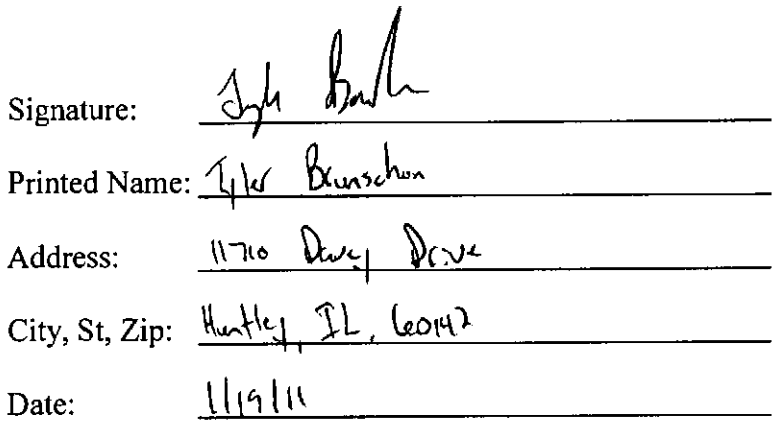 Signature:
Printed Name: Tyler Brunschon
Address: 11710 Davey Drive
City, St, Zip: Huntley, IL, 60142
Date: 1/19/11